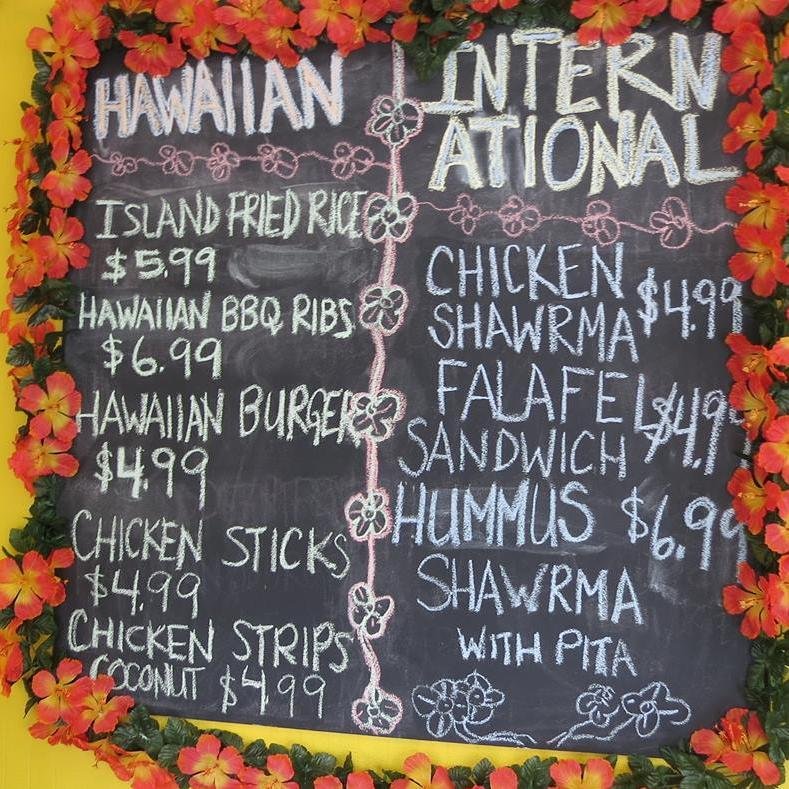 HAWAIIAN
ISLAND FRIED RICE
$5.99
HAWAIIAN BBQ RIBS
$6.99
HAWAIIAN BURGER
$4.99
CHICKEN STICKS
$4.99
CHICKEN STRIPS
COCONUT $4.99
INTERN
ATIONAL
CHICKEN $4.99
SHAWRMA
FALAFEL $4.99
SANDWICH
HUMMUS $6.99
SHAWRMA
WITH PITA